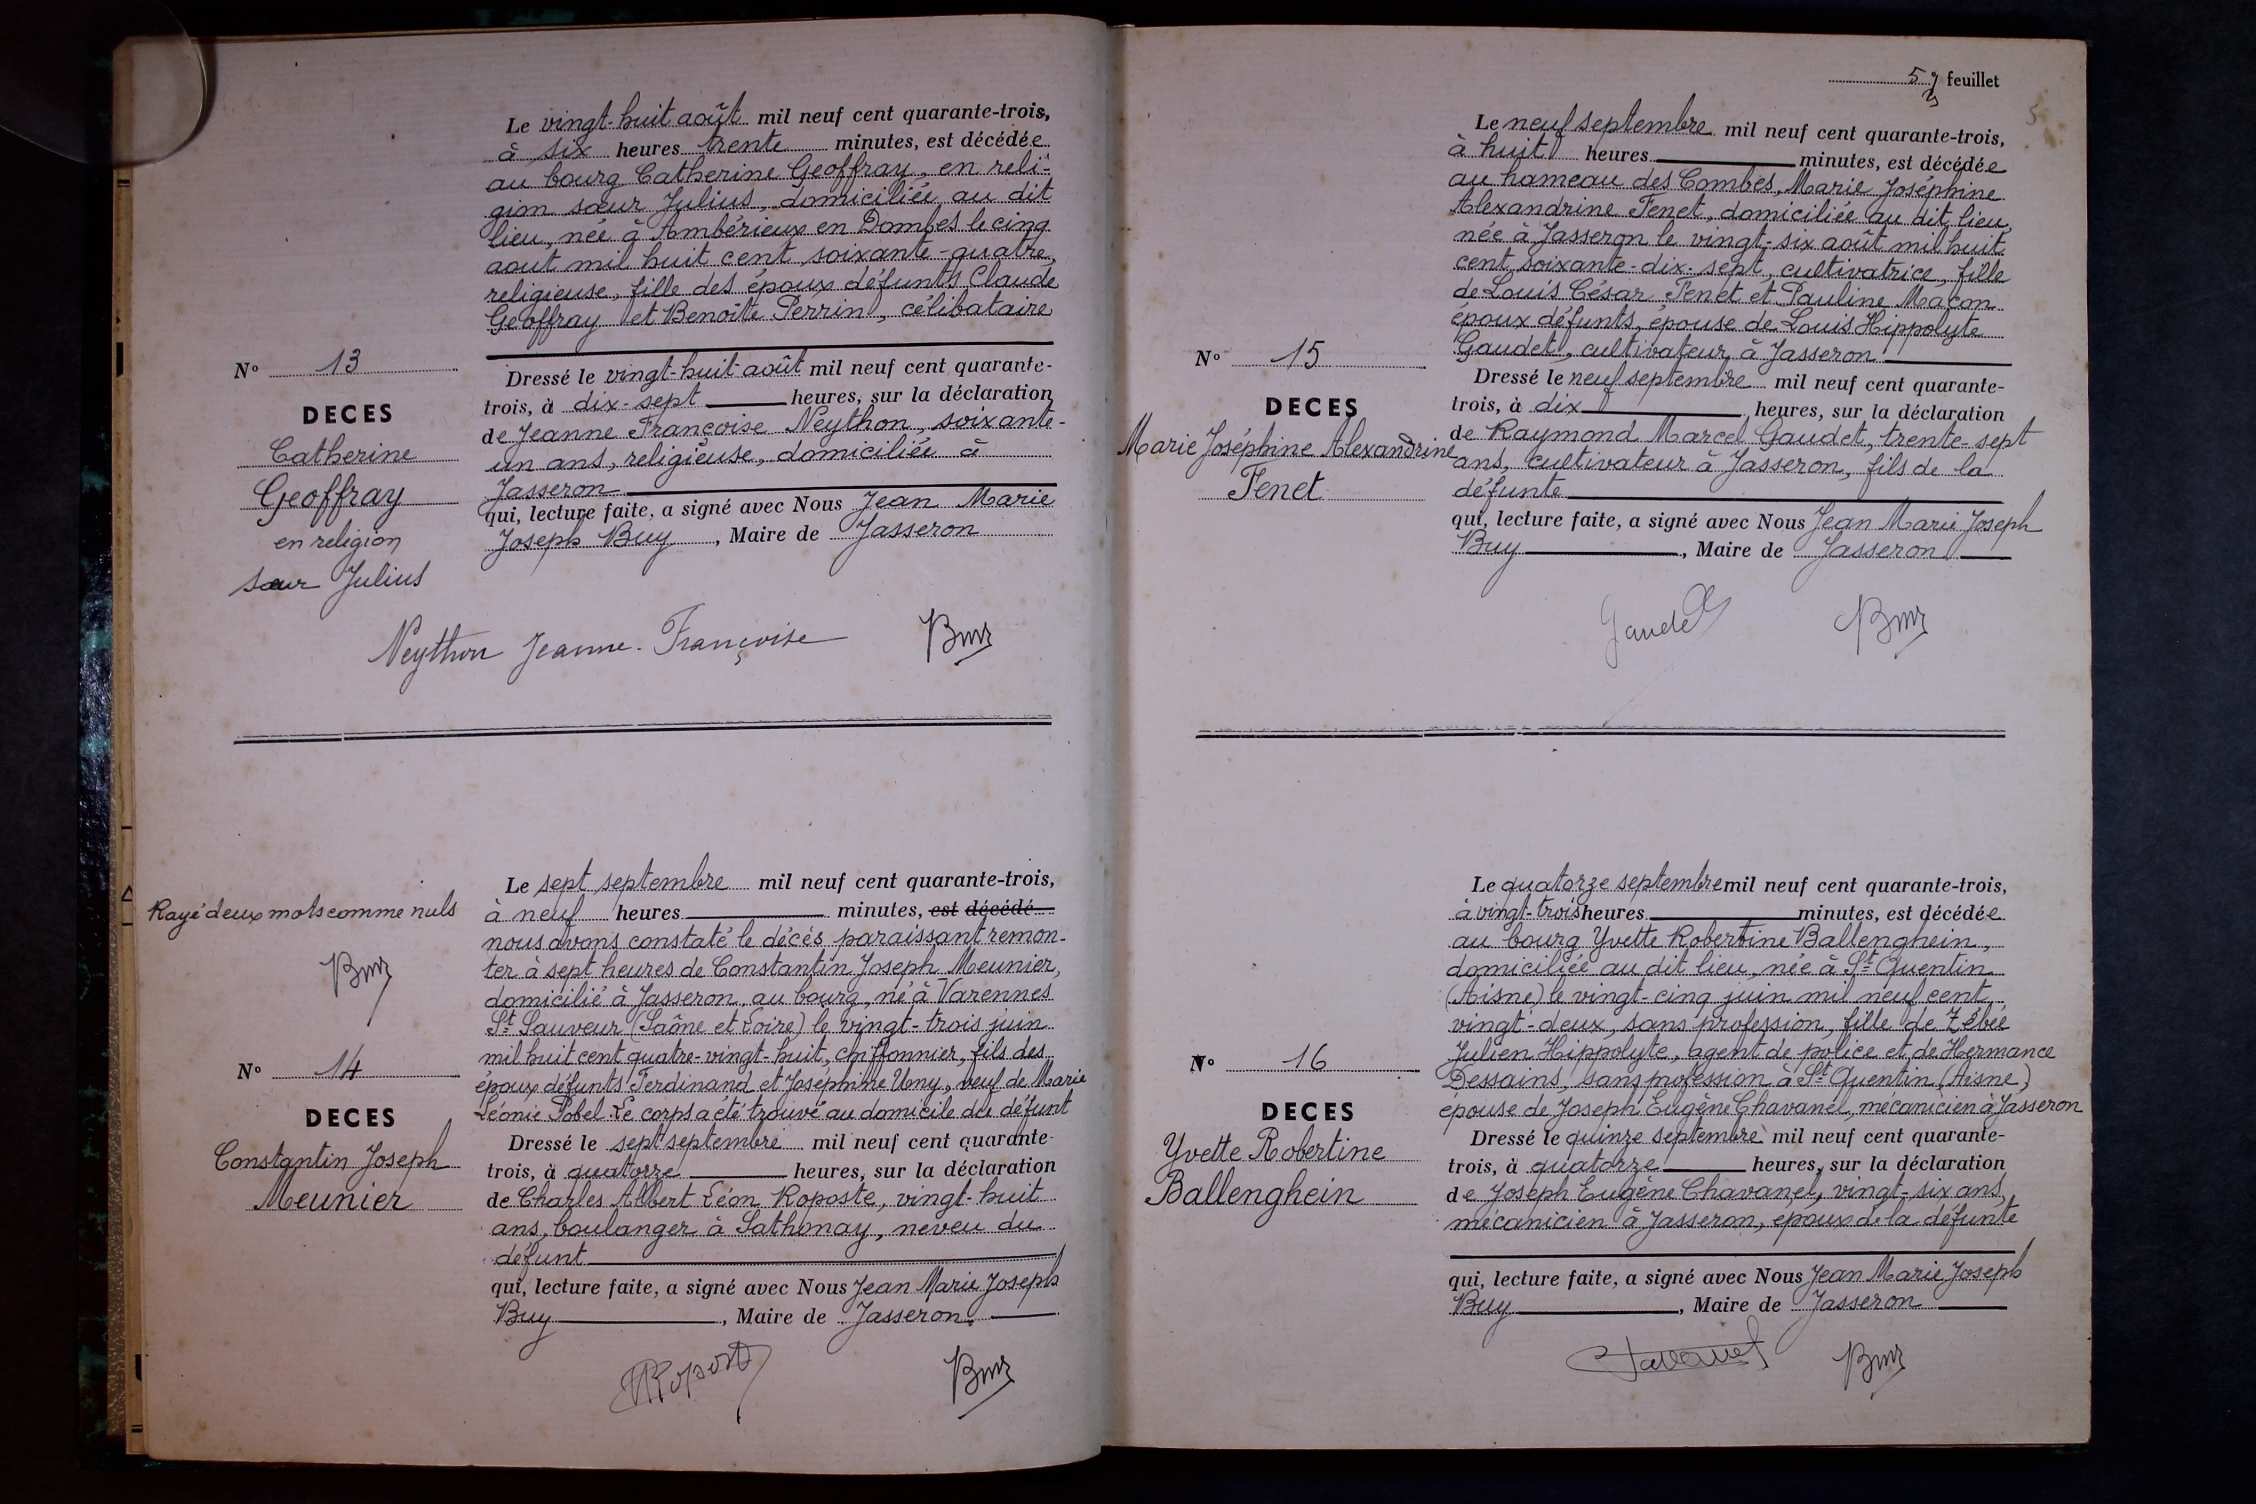 Le vingt-huit août mil neuf cent quarante-trois,
à six heures trente minutes, est décédée
au bourg Catherine Geoffray, en reli-
gion sœur Julius, domiciliée au dit
lieu, née à Ambérieux en Dombes le cinq
aout mil huit cent soixante-quatre,
religieuse, fille des époux défunts Claude
Geoffray et Benoîte Perrin, célibataire
N° 13
DECES
Catherine
Geoffray
en religion
sœur Julius
Dressé le vingt-huit août mil neuf cent quarante-
trois, à dix-sept heures, sur la déclaration
de Jeanne Françoise Neython, soixante-
un ans, religieuse, domiciliée à
Jasseron
qui, lecture faite, a signé avec Nous Jean Marie
Joseph Buy, Maire de Jasseron
Neython Jeanne-Françoise Buy
Rayé deux mots comme nuls
Buy
N° 14
DECES
Constantin Joseph
Meunier
Le sept septembre mil neuf cent quarante-trois,
à neuf heures minutes, est décédé
nous avons constaté le décès paraissant remon-
ter à sept heures de Constantin Joseph Meunier,
domicilié à Jasseron, au bourg, né à Varennes
St Sauveur (Saône et Loire) le vingt-trois juin
mil huit cent quatre-vingt-huit, chiffonnier, fils des
époux défunts Ferdinand et Joséphine Umy, veuf de Marie
Léonie Pobel. Le corps a été trouvé au domicile du défunt
Dressé le sept septembre mil neuf cent quarante-
trois, à quatorze heures, sur la déclaration
de Charles Albert Léon Roposte, vingt-huit
ans, boulanger à Sathonay, neveu du
défunt
qui, lecture faite, a signé avec Nous Jean Marie Joseph
Buy, Maire de Jasseron.
Roposte Buy
5 feuillet
5
Le neuf septembre mil neuf cent quarante-trois,
à huit heures minutes, est décédée
au hameau des Combes, Marie Joséphine
Alexandrine Fenet, domiciliée au dit lieu,
née à Jasseron le vingt-six août mil huit
cent soixante-dix-sept, cultivatrice, fille
de Louis César Fenet et Pauline Maçon
époux défunts, épouse de Louis Hippolyte
Gaudet, cultivateur à Jasseron
N° 15
DECES
Marie Joséphine Alexandrine
Fenet
Dressé le neuf septembre mil neuf cent quarante-
trois, à dix heures, sur la déclaration
de Raymond Marcel Gaudet, trente-sept
ans, cultivateur à Jasseron, fils de la
défunte
qui, lecture faite, a signé avec Nous Jean Marie Joseph
Buy, Maire de Jasseron
Gaudet Buy
Le quatorze septembre mil neuf cent quarante-trois,
à vingt-trois heures minutes, est décédée
au bourg Yvette Robertine Ballenghein,
domiciliée au dit lieu, née à St Quentin
(Aisne) le vingt-cinq juin mil neuf cent
vingt-deux, sans profession, fille de Zébée
Julien Hippolyte, agent de police et de Hermance
Dessains, sans profession à St Quentin (Aisne)
épouse de Joseph Eugène Chavanel, mécanicien à Jasseron
N° 16
DECES
Yvette Robertine
Ballenghein
Dressé le quinze septembre mil neuf cent quarante-
trois, à quatorze heures, sur la déclaration
de Joseph Eugène Chavanel, vingt-six ans,
mécanicien à Jasseron, époux de la défunte
qui, lecture faite, a signé avec Nous Jean Marie Joseph
Buy, Maire de Jasseron
Chavanel Buy